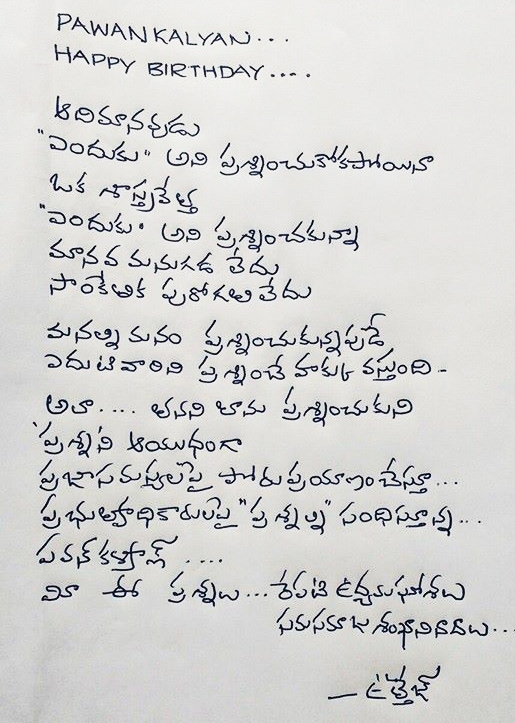 PAWANKALYAN...
HAPPY BIRTHDAY....
ఆదిమానవుడు
"ఎందుకు" అని ప్రశ్నించుకోకపోయినా
ఒక శాస్త్రవేత్త
"ఎందుకు" అని ప్రశ్నించకున్నా
మానవ మనుగడ లేదు
సాంకేతిక పురోగతి లేదు
మనల్ని మనం ప్రశ్నించుకున్నపుడే
ఎదుటివారిని ప్రశ్నించే హక్కు వస్తుంది -
అలా.... తనని తాను ప్రశ్నించుకుని
'ప్రశ్న'ని ఆయుధంగా
ప్రజాసమస్యలపై పోరు ప్రయాణంచేస్తూ...
ప్రభుత్వాధికారులపై "ప్రశ్నల్ని" సంధిస్తూన్న...
పవన్ కళ్యాణ్ ....
మీ ఈ ప్రశ్నలు... రేపటి ఉద్యమఘోశలు
సమసమాజ శంఖానినాదాలు...
— ఉత్తేజ్